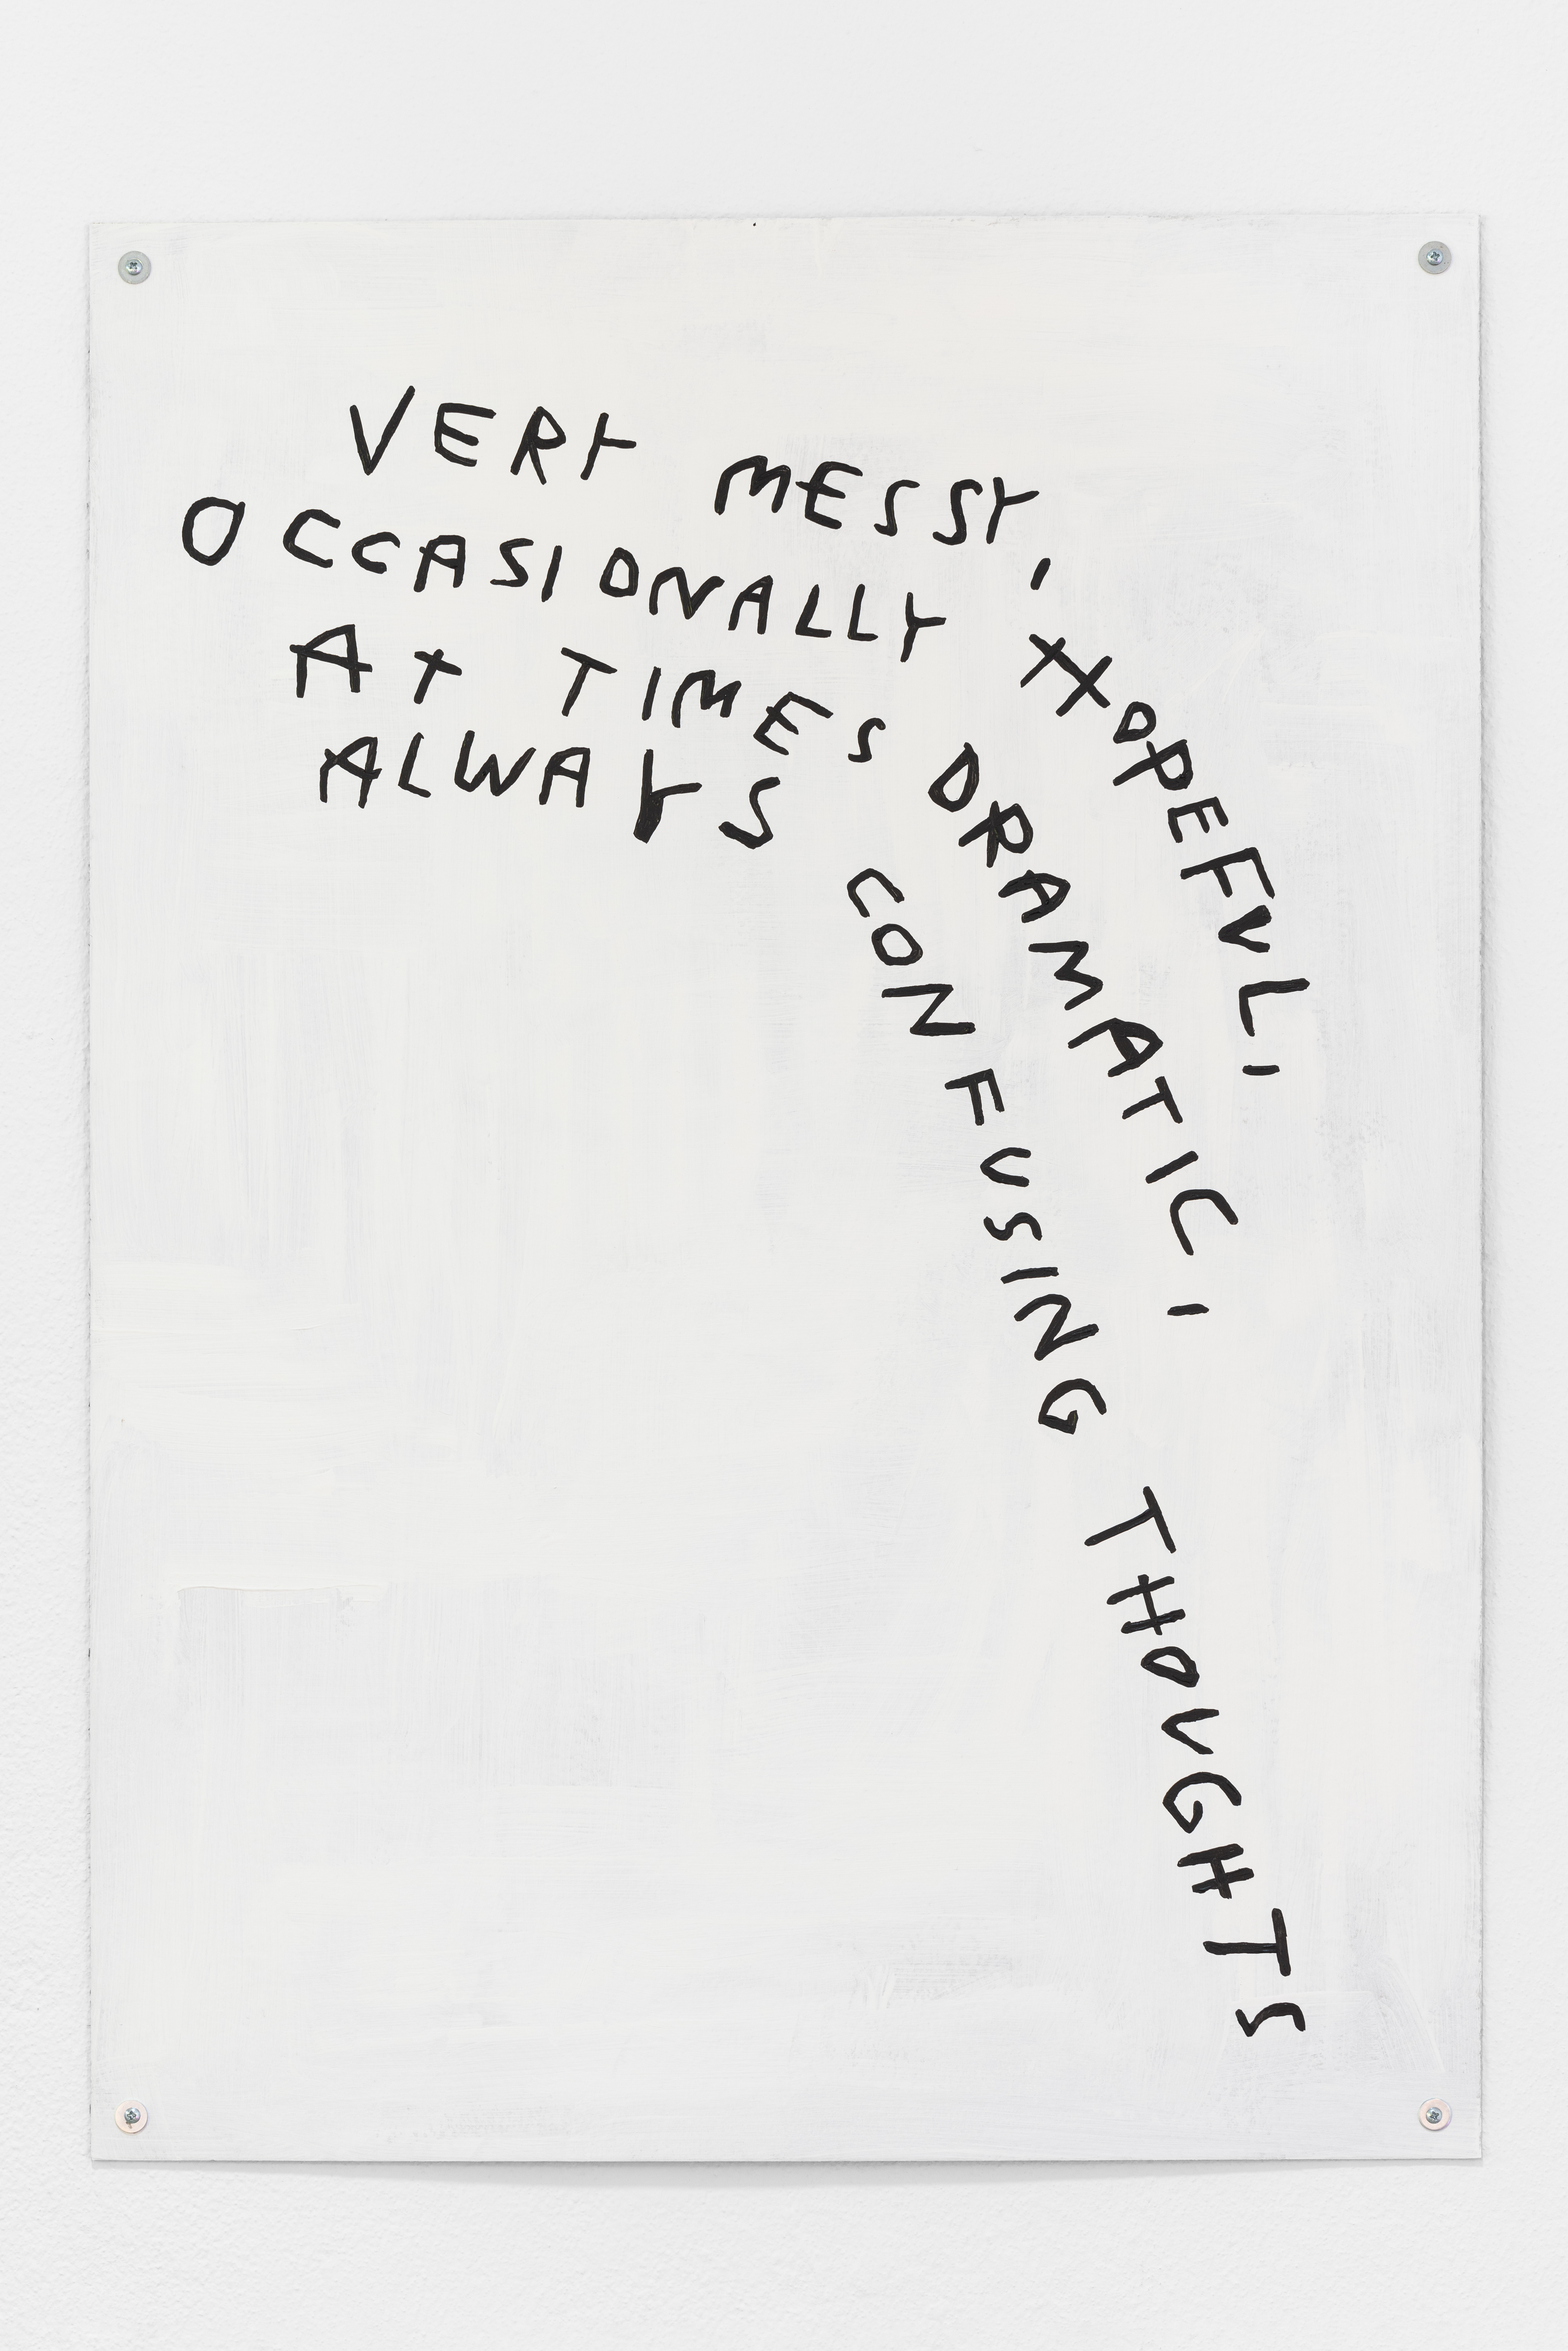 VERY MESSY,
OCCASIONALLY HOPEFUL,
AT TIMES DRAMATIC,
ALWAYS CONFUSING THOUGHTS